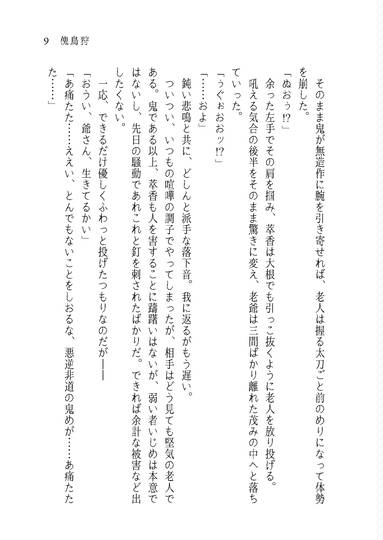 9　傀島狩
　そのまま鬼が無造作に腕を引き寄せれば、老人は握る太刀ごと前のめりになって体勢
を崩した。
「ぬおぅ!?」
　余った左手でその肩を掴み、萃香は大根でも引っこ抜くように老人を放り投げる。
　吼える気合の後半をそのまま驚きに変え、老爺は三間ばかり離れた茂みの中へと落ち
ていった。
「ぅぐぉおおッ!?」
「……およ」
　鈍い悲鳴と共に、どしんと派手な落下音。我に返るがもう遅い。
　ついつい、いつもの喧嘩の調子でやってしまったが、相手はどう見ても堅気の老人で
ある。鬼である以上、萃香も人を害することに躊躇いはないが、弱い者いじめは本意で
はないし、先日の騒動であれこれと釘を刺されたばかりだ。できれば余計な被害など出
したくない。
　一応、できるだけ優しくふわっと投げたつもりなのだが――
「おうい、爺さん、生きてるかい」
「あ痛たた……ええい、とんでもないことをしおるな、悪逆非道の鬼めが……あ痛たた
た……」